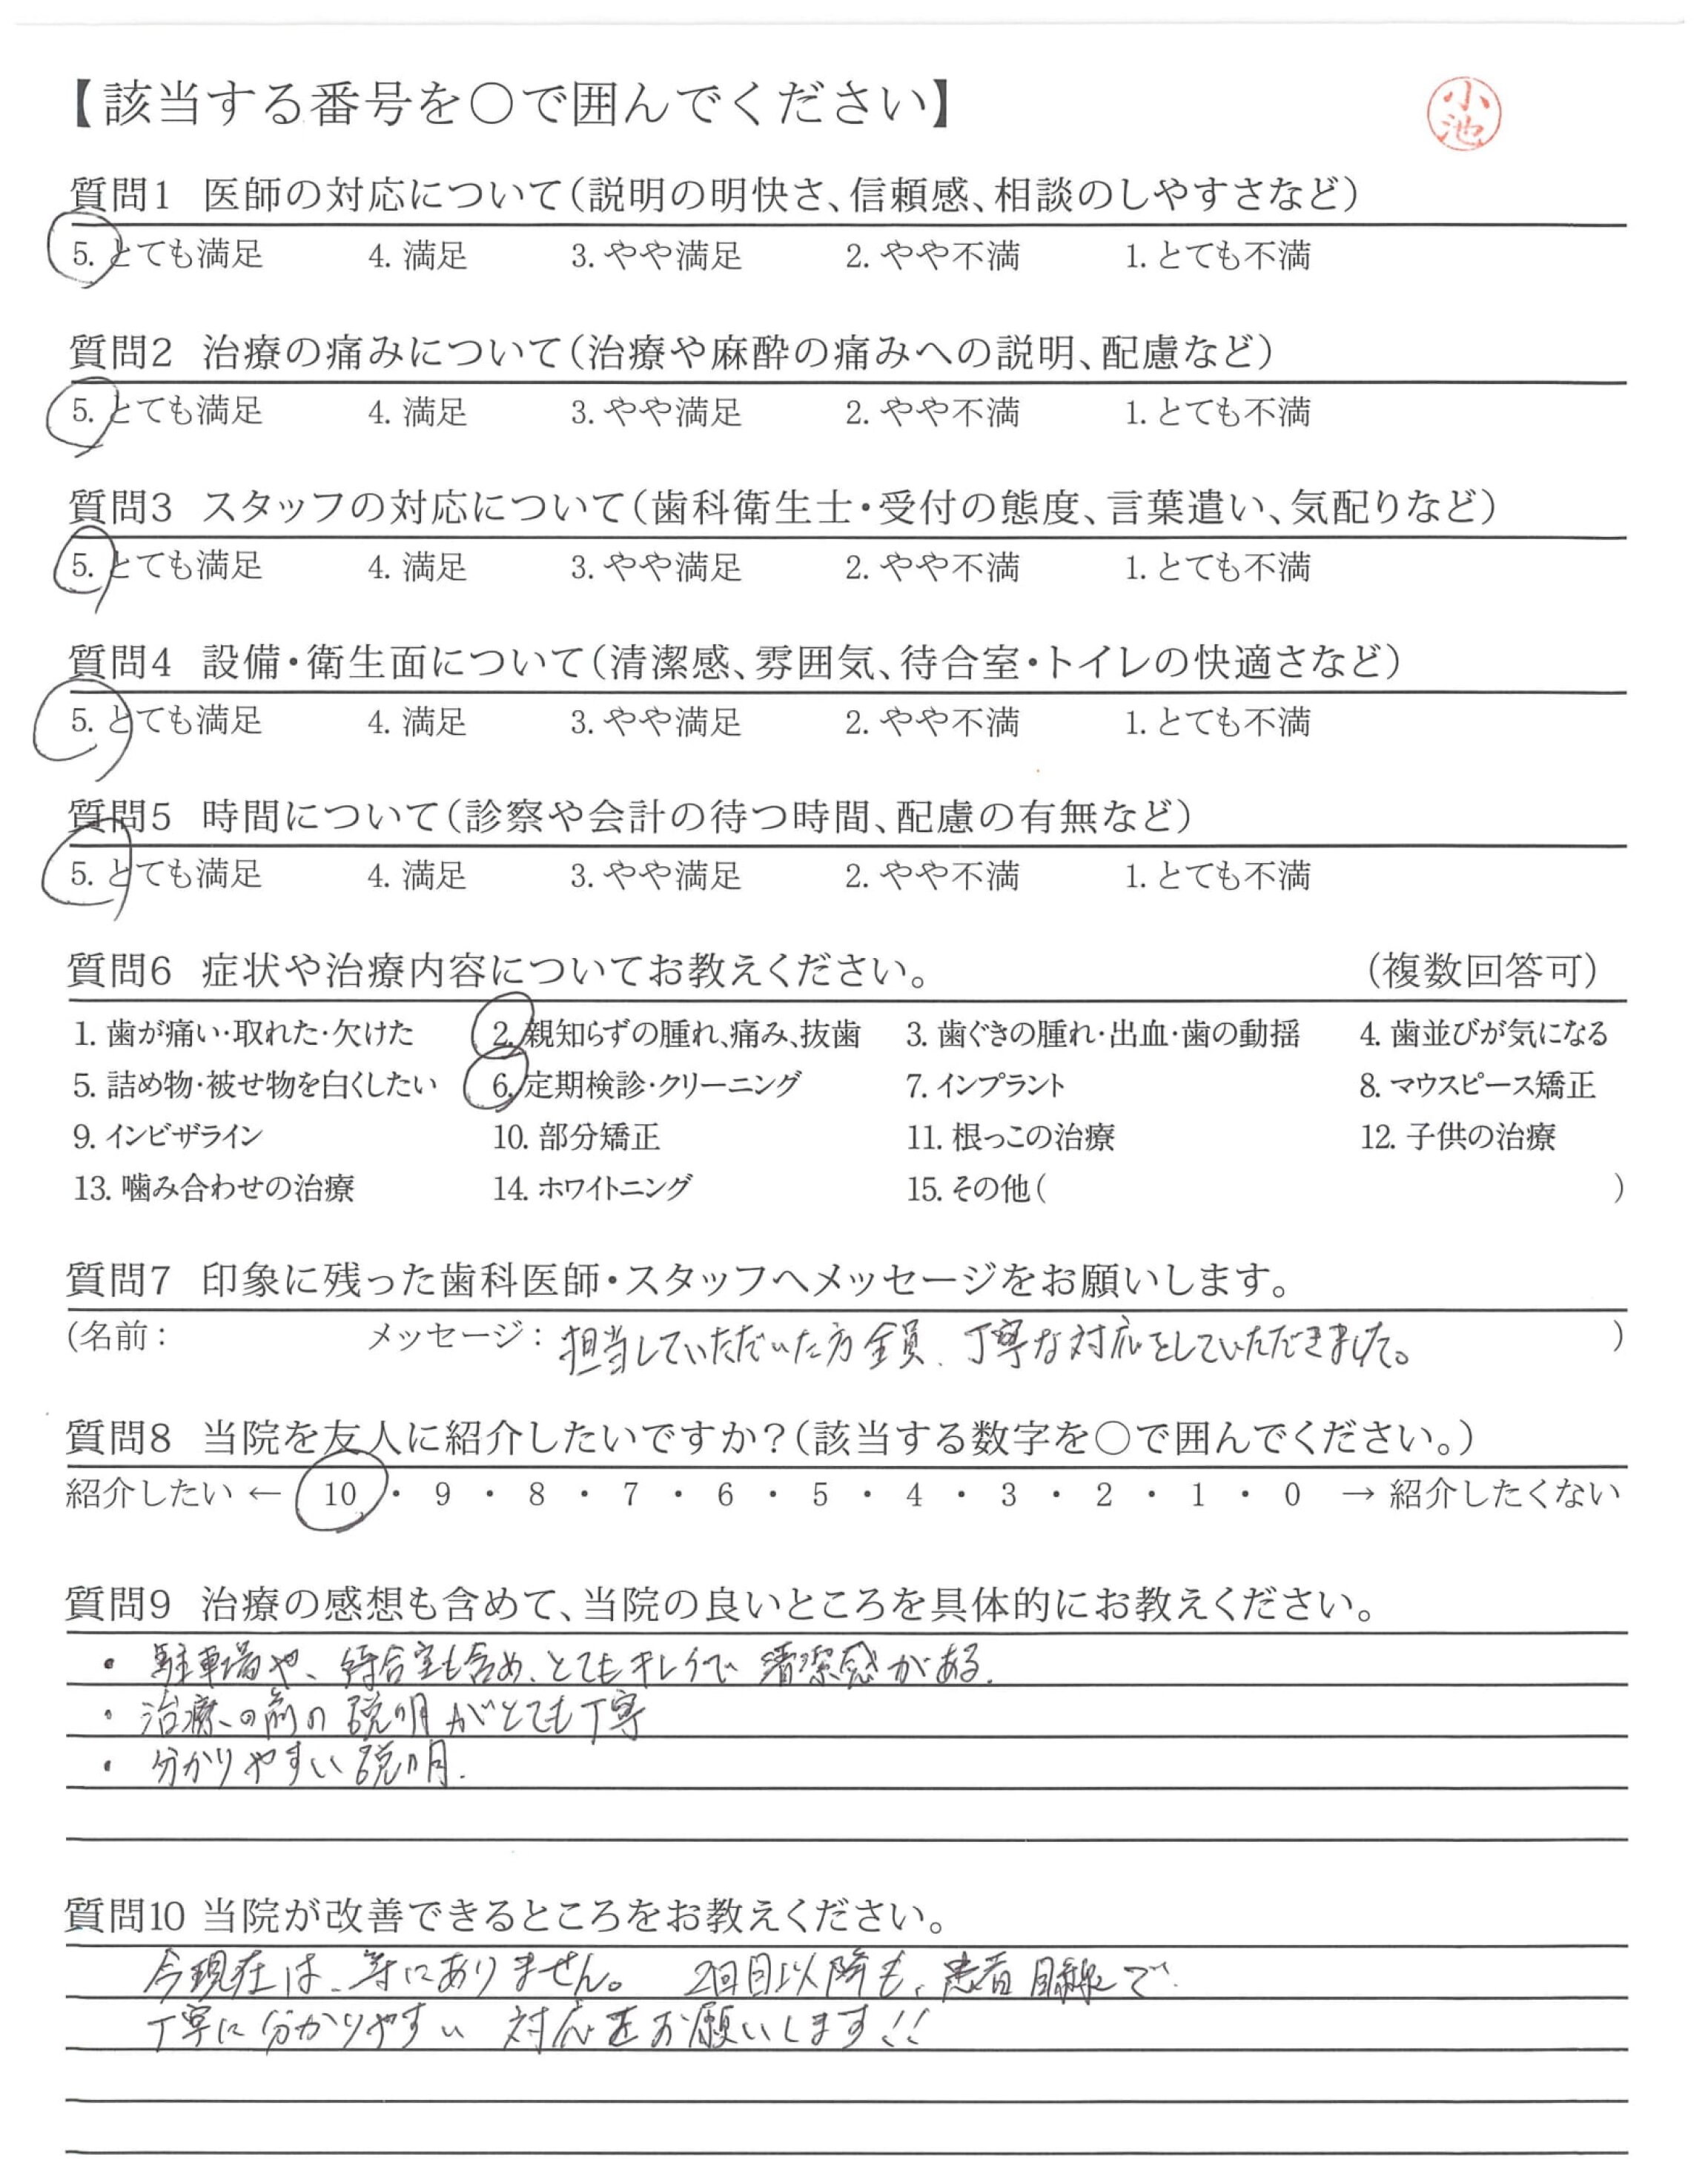 【該当する番号を○で囲んでください】
小池
質問1 医師の対応について(説明の明快さ、信頼感、相談のしやすさなど)
5. とても満足 4. 満足 3. やや満足 2. やや不満 1. とても不満
質問2 治療の痛みについて(治療や麻酔の痛みへの説明、配慮など)
5. とても満足 4. 満足 3. やや満足 2. やや不満 1. とても不満
質問3 スタッフの対応について(歯科衛生士・受付の態度、言葉遣い、気配りなど)
5. とても満足 4. 満足 3. やや満足 2. やや不満 1. とても不満
質問4 設備・衛生面について(清潔感、雰囲気、待合室・トイレの快適さなど)
5. とても満足 4. 満足 3. やや満足 2. やや不満 1. とても不満
質問5 時間について(診察や会計の待つ時間、配慮の有無など)
5. とても満足 4. 満足 3. やや満足 2. やや不満 1. とても不満
質問6 症状や治療内容についてお教えください。 (複数回答可)
1. 歯が痛い・取れた・欠けた 2. 親知らずの腫れ、痛み、抜歯 3. 歯ぐきの腫れ・出血・歯の動揺 4. 歯並びが気になる
5. 詰め物・被せ物を白くしたい 6. 定期検診・クリーニング 7. インプラント 8. マウスピース矯正
9. インビザライン 10. 部分矯正 11. 根っこの治療 12. 子供の治療
13. 噛み合わせの治療 14. ホワイトニング 15. その他( )
質問7 印象に残った歯科医師・スタッフへメッセージをお願いします。
(名前: メッセージ: 担当していただいた方全員、丁寧な対応をしていただきました。 )
質問8 当院を友人に紹介したいですか?(該当する数字を○で囲んでください。)
紹介したい ← 10 ・ 9 ・ 8 ・ 7 ・ 6 ・ 5 ・ 4 ・ 3 ・ 2 ・ 1 ・ 0 → 紹介したくない
質問9 治療の感想も含めて、当院の良いところを具体的にお教えください。
・ 駐車場や、待合室も含め、とてもキレイで 清潔感がある.
・ 治療の前の説明がとても丁寧
・ 分かりやすい説明.
質問10 当院が改善できるところをお教えください。
今現在は、特にありません。 2回目以降も、患者目線で
丁寧に分かりやすい 対応をお願いします!!